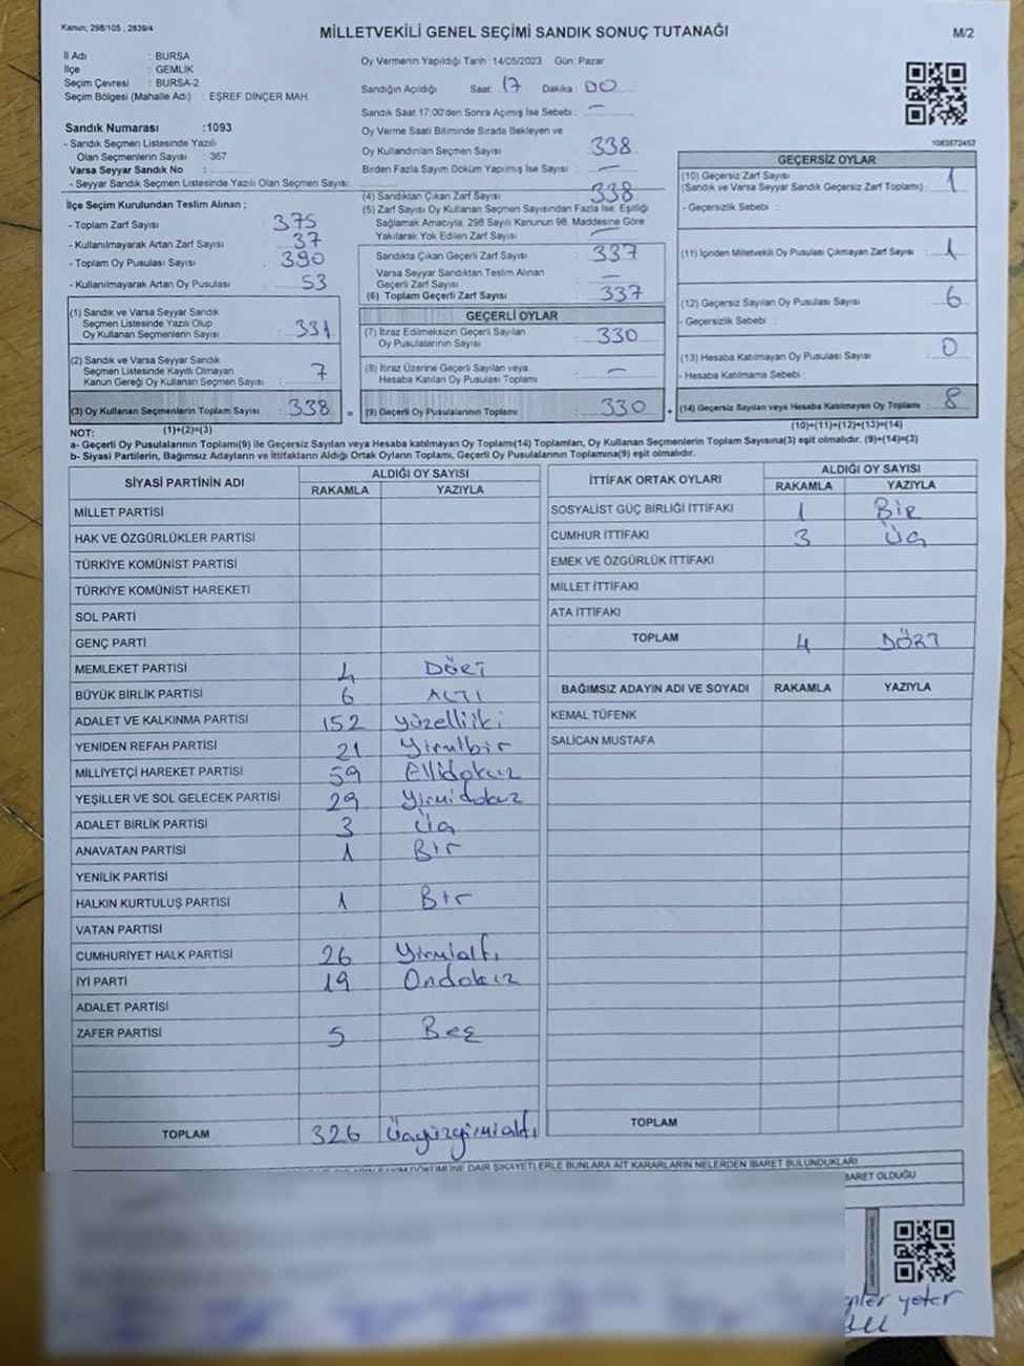 Kanun; 298/105 , 2839/4
MİLLETVEKİLİ GENEL SEÇİMİ SANDIK SONUÇ TUTANAĞI
M/2
İl Adı : BURSA
İlçe : GEMLİK
Seçim Çevresi : BURSA-2
Seçim Bölgesi (Mahalle Adı) : EŞREF DİNÇER MAH.
Sandık Numarası :1093
- Sandık Seçmen Listesinde Yazılı
Olan Seçmenlerin Sayısı : 367
Varsa Seyyar Sandık No :
- Seyyar Sandık Seçmen Listesinde Yazılı Olan Seçmen Sayısı:
İlçe Seçim Kurulundan Teslim Alınan ;
- Toplam Zarf Sayısı : 375
- Kullanılmayarak Artan Zarf Sayısı : 37
- Toplam Oy Pusulası Sayısı : 390
- Kullanılmayarak Artan Oy Pusulası : 53
(1) Sandık ve Varsa Seyyar Sandık
Seçmen Listesinde Yazılı Olup
Oy Kullanan Seçmenlerin Sayısı : 331
(2) Sandık ve Varsa Seyyar Sandık
Seçmen Listesinde Kayıtlı Olmayan
Kanun Gereği Oy Kullanan Seçmen Sayısı : 7
(3) Oy Kullanan Seçmenlerin Toplam Sayısı : 338 =
(1)+(2)=(3)
Oy Vermenin Yapıldığı Tarih :14/05/2023 Gün: Pazar
Sandığın Açıldığı Saat: 17 Dakika : 00
Sandık Saat 17:00'den Sonra Açılmış İse Sebebi : —
Oy Verme Saati Bitiminde Sırada Bekleyen ve
Oy Kullandırılan Seçmen Sayısı : 338
Birden Fazla Sayım Döküm Yapılmış İse Sayısı : —
(4) Sandıktan Çıkan Zarf Sayısı : 338
(5) Zarf Sayısı Oy Kullanan Seçmen Sayısından Fazla İse; Eşitliği
Sağlamak Amacıyla, 298 Sayılı Kanunun 98. Maddesine Göre
Yakılarak Yok Edilen Zarf Sayısı : —
Sandıkta Çıkan Geçerli Zarf Sayısı : 337
Varsa Seyyar Sandıktan Teslim Alınan
Geçerli Zarf Sayısı : —
(6) Toplam Geçerli Zarf Sayısı : 337
GEÇERLİ OYLAR
(7) İtiraz Edilmeksizin Geçerli Sayılan
Oy Pusulalarının Sayısı : 330
(8) İtiraz Üzerine Geçerli Sayılan veya
Hesaba Katılan Oy Pusulası Toplamı : —
(9) Geçerli Oy Pusulalarının Toplamı : 330 +
1083672452
GEÇERSİZ OYLAR
(10) Geçersiz Zarf Sayısı : 1
(Sandık ve Varsa Seyyar Sandık Geçersiz Zarf Toplamı)
- Geçersizlik Sebebi :
(11) İçinden Milletvekili Oy Pusulası Çıkmayan Zarf Sayısı : 1
(12) Geçersiz Sayılan Oy Pusulası Sayısı : 6
- Geçersizlik Sebebi :
(13) Hesaba Katılmayan Oy Pusulası Sayısı : 0
- Hesaba Katılmama Sebebi :
(14) Geçersiz Sayılan veya Hesaba Katılmayan Oy Toplamı : 8
(10)+(11)+(12)+(13)=(14)
NOT:
a- Geçerli Oy Pusulalarının Toplamı(9) ile Geçersiz Sayılan veya Hesaba katılmayan Oy Toplam(14) Toplamları, Oy Kullanan Seçmenlerin Toplam Sayısına(3) eşit olmalıdır. (9)+(14)=(3)
b- Siyasi Partilerin, Bağımsız Adayların ve İttifakların Aldığı Ortak Oyların Toplamı, Geçerli Oy Pusulalarının Toplamına(9) eşit olmalıdır.
SİYASİ PARTİNİN ADI ALDIĞI OY SAYISI
RAKAMLA YAZIYLA
MİLLET PARTİSİ
HAK VE ÖZGÜRLÜKLER PARTİSİ
TÜRKİYE KOMÜNİST PARTİSİ
TÜRKİYE KOMÜNİST HAREKETİ
SOL PARTİ
GENÇ PARTİ
MEMLEKET PARTİSİ 4 DÖRT
BÜYÜK BİRLİK PARTİSİ 6 ALTI
ADALET VE KALKINMA PARTİSİ 152 yüzelliiki
YENİDEN REFAH PARTİSİ 21 Yirmibir
MİLLİYETÇİ HAREKET PARTİSİ 59 Ellidokuz
YEŞİLLER VE SOL GELECEK PARTİSİ 29 Yirmidokuz
ADALET BİRLİK PARTİSİ 3 Üç
ANAVATAN PARTİSİ 1 Bir
YENİLİK PARTİSİ
HALKIN KURTULUŞ PARTİSİ 1 Bir
VATAN PARTİSİ
CUMHURİYET HALK PARTİSİ 26 Yirmialtı
İYİ PARTİ 19 Ondokuz
ADALET PARTİSİ
ZAFER PARTİSİ 5 Beş
TOPLAM 326 Üçyüzyirmialtı
İTTİFAK ORTAK OYLARI ALDIĞI OY SAYISI
RAKAMLA YAZIYLA
SOSYALİST GÜÇ BİRLİĞİ İTTİFAKI 1 Bir
CUMHUR İTTİFAKI 3 Üç
EMEK VE ÖZGÜRLÜK İTTİFAKI
MİLLET İTTİFAKI
ATA İTTİFAKI
TOPLAM 4 DÖRT
BAĞIMSIZ ADAYIN ADI VE SOYADI RAKAMLA YAZIYLA
KEMAL TÜFENK
SALİCAN MUSTAFA
TOPLAM
DÖKÜMÜNE DAİR ŞİKAYETLERLE BUNLARA AİT KARARLARIN NELERDEN İBARET BULUNDUKLARI
BARET OLDUĞU
yeter